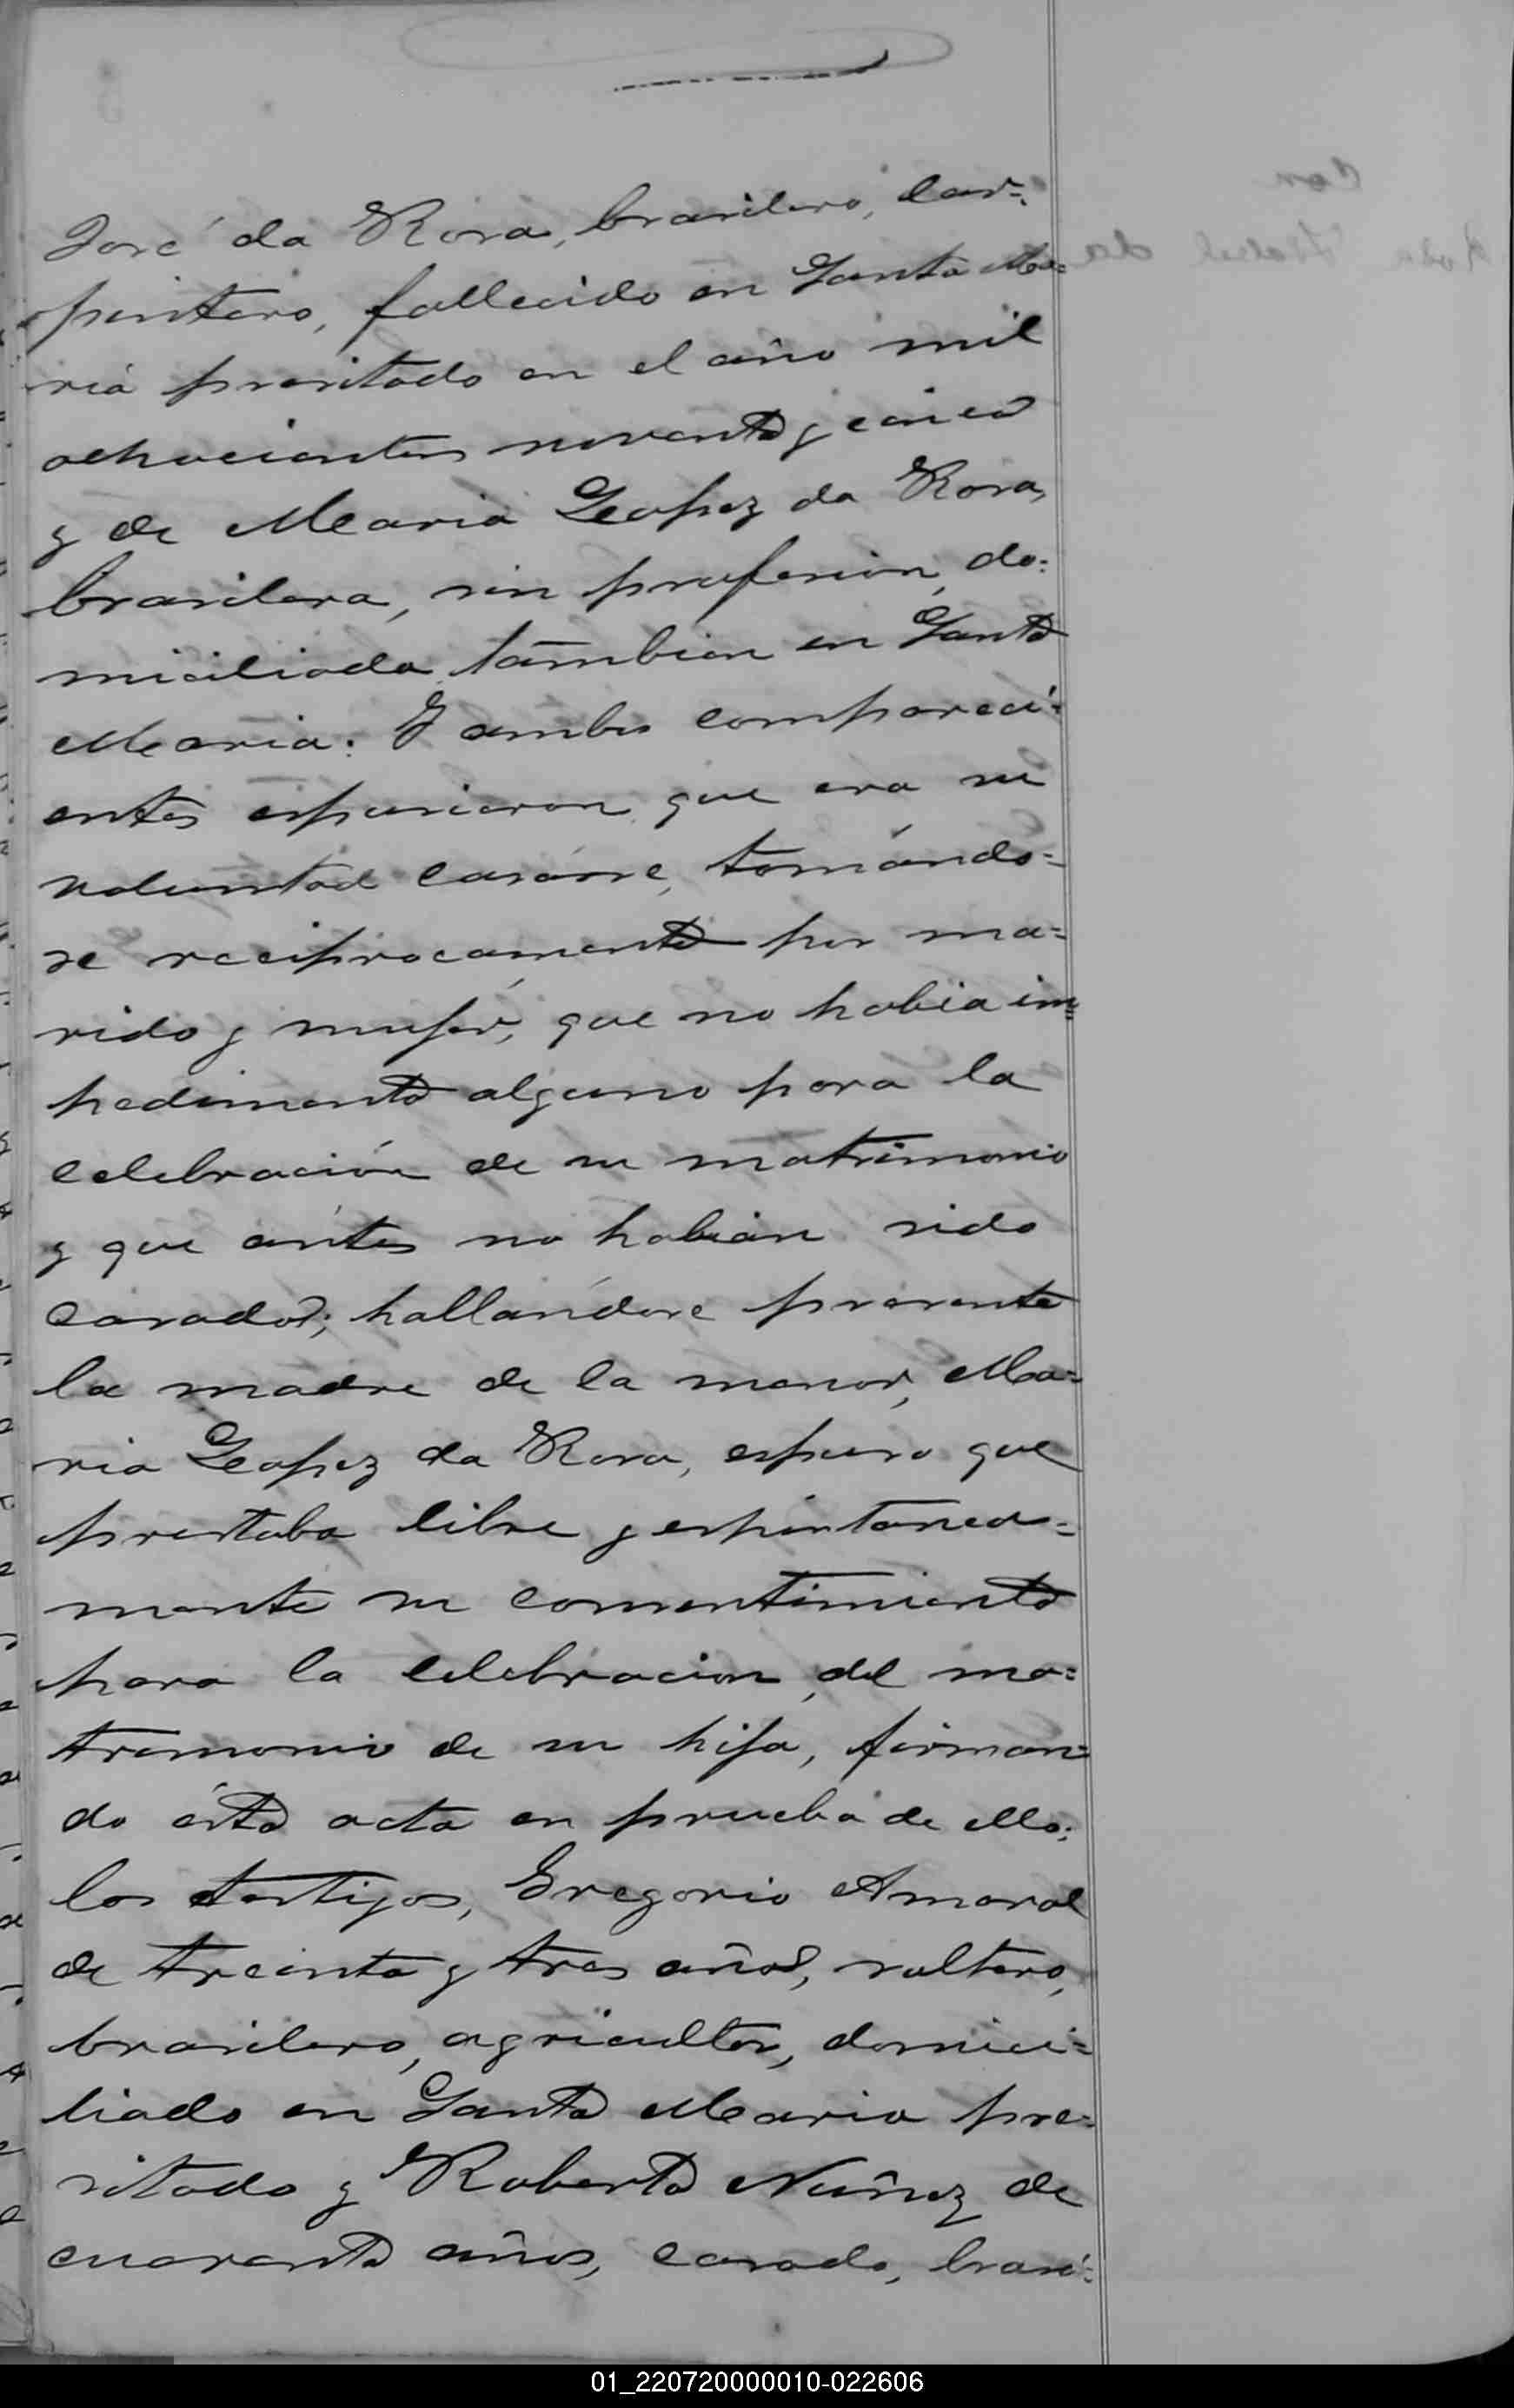 José da Rosa, brasilero, car=
pintero, fallecido en Santa Ma=
ria presitado en el año mil
ochocientos noventa y cinco
y de Maria Leopez da Rosa,
brasilera, sin profesion, do=
miciliada tambien en Santa
Maria: I ambos compareci=
entes espusieron que era su
voluntad casarse, tomándo=
se reciprocamente por ma=
rido y mujer, que no habia im=
pedimento alguno para la
celebración de su matrimonio
y que ántes no habian sido
casados; hallandose presente
la madre de la menor, Ma=
ria Leopez da Rosa, espuso que
prestaba libre y espontanea=
mente su consentimiento
para la celebracion del ma=
tremonio de su hija, firman=
do ésta acta en prueba de ello;
los testigos, Gregorio Amaral
de treinta y tres años, soltero,
brasilero, agricultor, domici=
liado en Santa Maria pre=
sitado y Roberto Nuñez de
cuarenta años, casado, brasi=
01_220720000010-022606